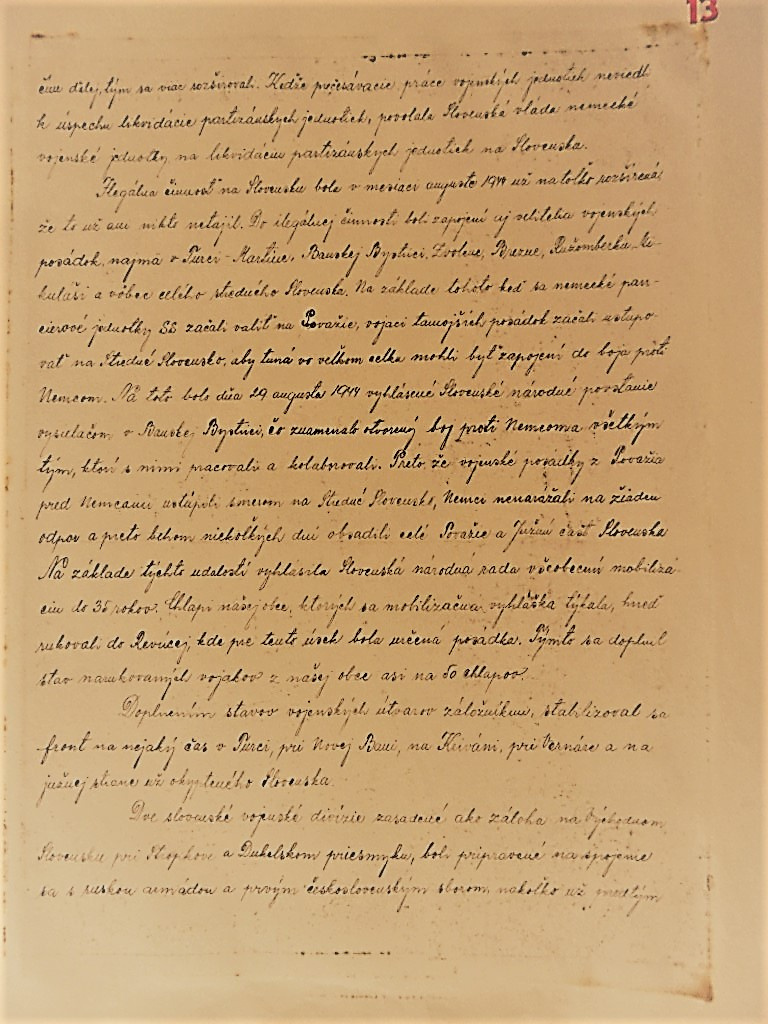 13
čím ďalej, tým sa viac rozširovali. Kedže prečesávacie práce vojenských jednotiek neviedli
k úspechu likvidácie partizánskych jednotiek, povolala Slovenská vláda nemecké
vojenské jednotky na likvidáciu partizánskych jednotiek na Slovensku.
Ilegálna činnosť na Slovensku bola v mesiaci auguste 1944 už natoľko rozšírená,
že to už ani nikto netajil. Do ilegálnej činnosti boli zapojení aj velitelia vojenských
posádok, najmä v Turč. Martine, Banskej Bystrici, Zvolene, Brezne, Ružomberku, Mi-
kuláši a vôbec celého stredného Slovenska. Na základe tohoto keď sa nemecké pan-
cierové jednotky SS začali valiť na Považie, vojaci tamojších posádok začali ustupo-
vať na Stredné Slovensko, aby tuná vo veľkom celku mohli byť zapojení do boja proti
Nemcom. Na toto bolo dňa 29 augusta 1944 vyhlásené Slovenské národné povstanie
vysielačom v Banskej Bystrici, čo znamenalo otvorený boj proti Nemcom a všetkým
tým, ktorí s nimi pracovali a kolaborovali. Preto, že vojenské posádky z Považia
pred Nemcami ustúpili smerom na Stredné Slovensko, Nemci nenarážali na žiaden
odpor a preto behom niekoľkých dní obsadili celé Považie a Južnú časť Slovenska
Na základe týchto udalostí vyhlásila Slovenská národná rada všeobecnú mobilizá-
ciu do 35 rokov. Chlapi našej obce, ktorých sa mobilizačná vyhláška týkala, hneď
rukovali do Revúcej, kde pre tento úsek bola určená posádka. Týmto sa doplnil
stav narukovaných vojakov z našej obce asi na 50 chlapov.
Doplnením stavov vojenských útvarov záložníkmi, stabilizoval sa
front na nejaký čas v Turci, pri Novej Bani, na Kriváni, pri Vernáre a na
južnej strane už okypteného Slovenska.
Dve slovenské vojenské divízie zasadené ako záloha na Východnom
Slovensku pri Stropkove a Dukelskom priesmyku, boli pripravené na spojenie
sa s ruskou armádou a prvým československým sborom, nakoľko už medzitým